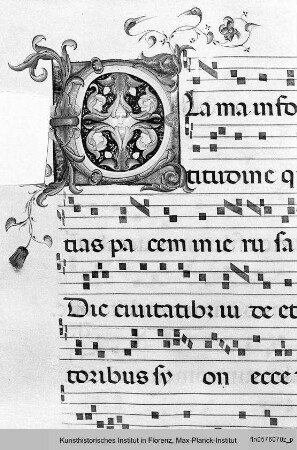 C
La ma info
titudine q
tias pa cem in ie ru sa
Dic ciuitatibꝛ iu de et
toribus sy on ecce
Kunsthistorisches Institut in Florenz, Max-Planck-Institut
fln0578070z_p